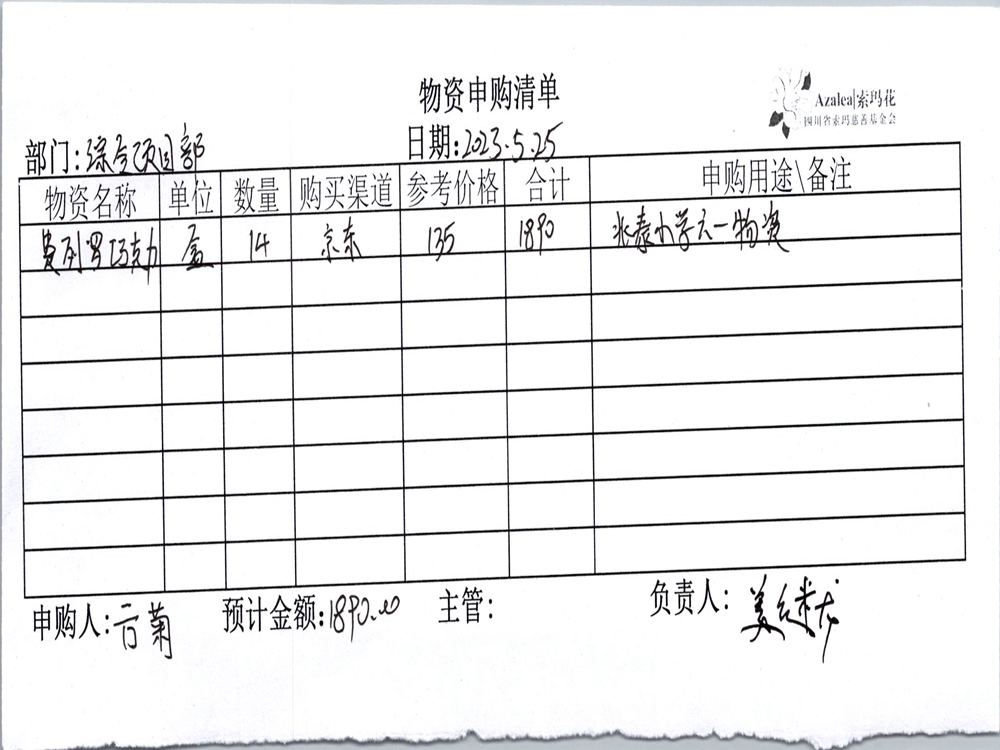 物资申购清单
Azalea|索玛花
四川省索玛慈善基金会
部门:综合项目部 日期:2023.5.25
物资名称 单位 数量 购买渠道 参考价格 合计 申购用途\备注
费列罗巧克力 盒 14 京东 135 1890 兆泰小学六一物资
申购人: 菊 预计金额:1890.00 主管: 负责人: